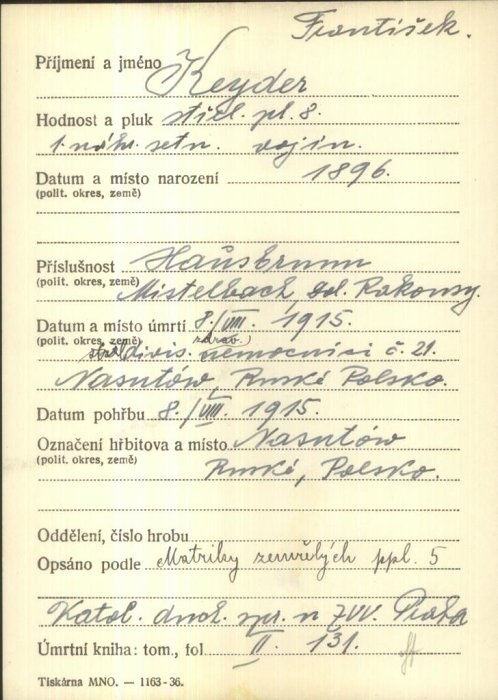 František.
Příjmení a jméno Keyder
Hodnost a pluk střel. pl. 8.
1. náhr. setn. vojín.
Datum a místo narození 1896.
(polit. okres, země)
Příslušnost Hausbrunn
(polit. okres, země) Mistelbach, dol. Rakousy.
Datum a místo úmrtí 8./VIII. 1915.
(polit. okres, země) zdrav.
divis. nemocnici č. 21.
Nasutów, Ruské Polsko.
Datum pohřbu 8./VIII. 1915.
Označení hřbitova a místo Nasutów
(polit. okres, země) Ruské, Polsko.
Oddělení, číslo hrobu
Opsáno podle Matriky zemřelých ppl. 5
Katol. duch. spr. u ZVV. Praha
Úmrtní kniha: tom., fol II. 131.
Tiskárna MNO. — 1163-36.